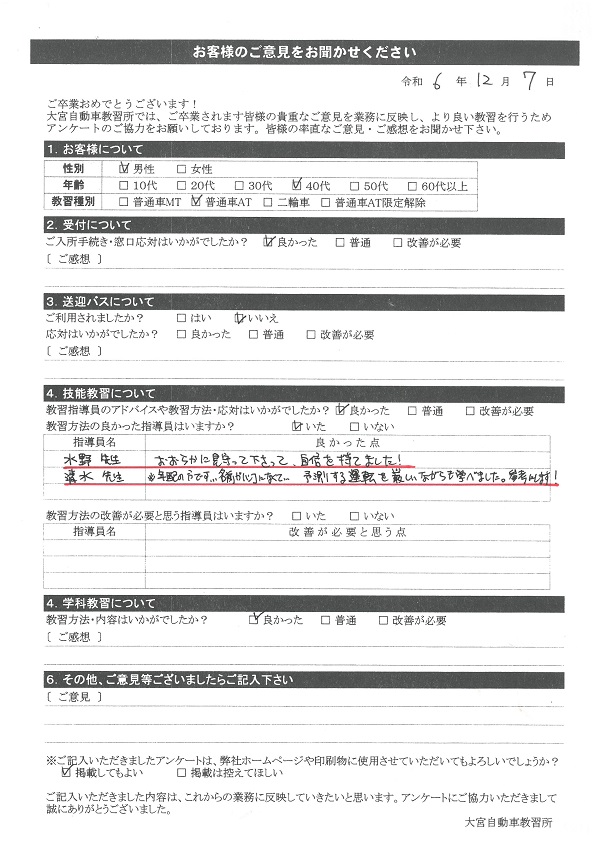 お客様のご意見をお聞かせください
令和 6 年 12 月 7 日
ご卒業おめでとうございます！
大宮自動車教習所では、ご卒業されます皆様の貴重なご意見を業務に反映し、より良い教習を行うため
アンケートのご協力をお願いしております。皆様の率直なご意見・ご感想をお聞かせ下さい。
1. お客様について
性別 ☑男性 □女性
年齢 □10代 □20代 □30代 ☑40代 □50代 □60代以上
教習種別 □普通車MT ☑普通車AT □二輪車 □普通車AT限定解除
2. 受付について
ご入所手続き・窓口応対はいかがでしたか？ ☑良かった □普通 □改善が必要
〔 ご感想 〕
3. 送迎バスについて
ご利用されましたか？ □はい ☑いいえ
応対はいかがでしたか？ □良かった □普通 □改善が必要
〔 ご感想 〕
4. 技能教習について
教習指導員のアドバイスや教習方法・応対はいかがでしたか？ ☑良かった □普通 □改善が必要
教習方法の良かった指導員はいますか？ ☑いた □いない
指導員名 良かった点
水野 先生 おおらかに見守って下さって、自信を持てました！
清水 先生 ※年配の方です 予測する運転を厳しいながらも学べました。
教習方法の改善が必要と思う指導員はいますか？ □いた □いない
指導員名 改善が必要と思う点
4. 学科教習について
教習方法・内容はいかがでしたか？ ☑良かった □普通 □改善が必要
〔 ご感想 〕
6. その他、ご意見等ございましたらご記入下さい
〔 ご意見 〕
※ご記入いただきましたアンケートは、弊社ホームページや印刷物に使用させていただいてもよろしいでしょうか？
☑掲載してもよい □掲載は控えてほしい
ご記入いただきました内容は、これからの業務に反映していきたいと思います。アンケートにご協力いただきまして
誠にありがとうございました。
大宮自動車教習所